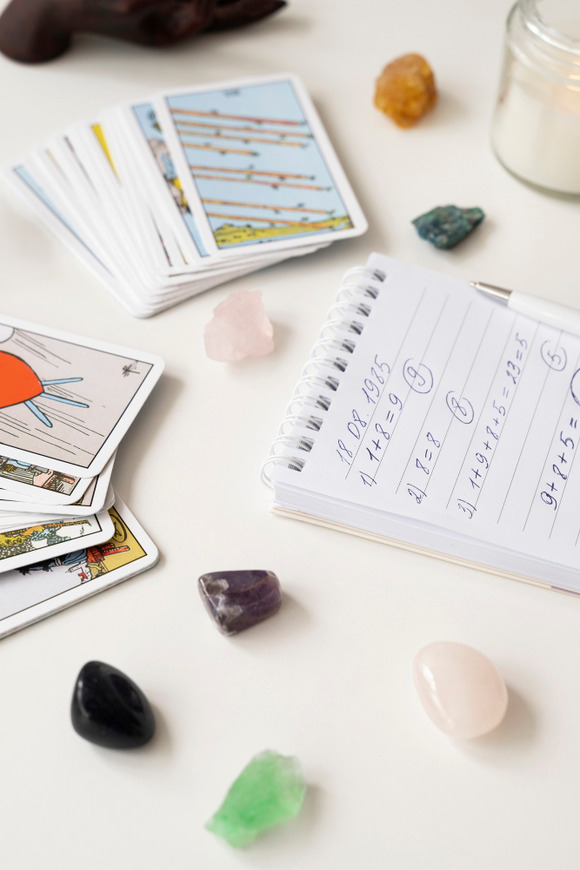 18 08. 1985
1) 1+8=9 9
2) 8=8 8
3) 1+9+8+5 = 23=5 5
9+8+5=